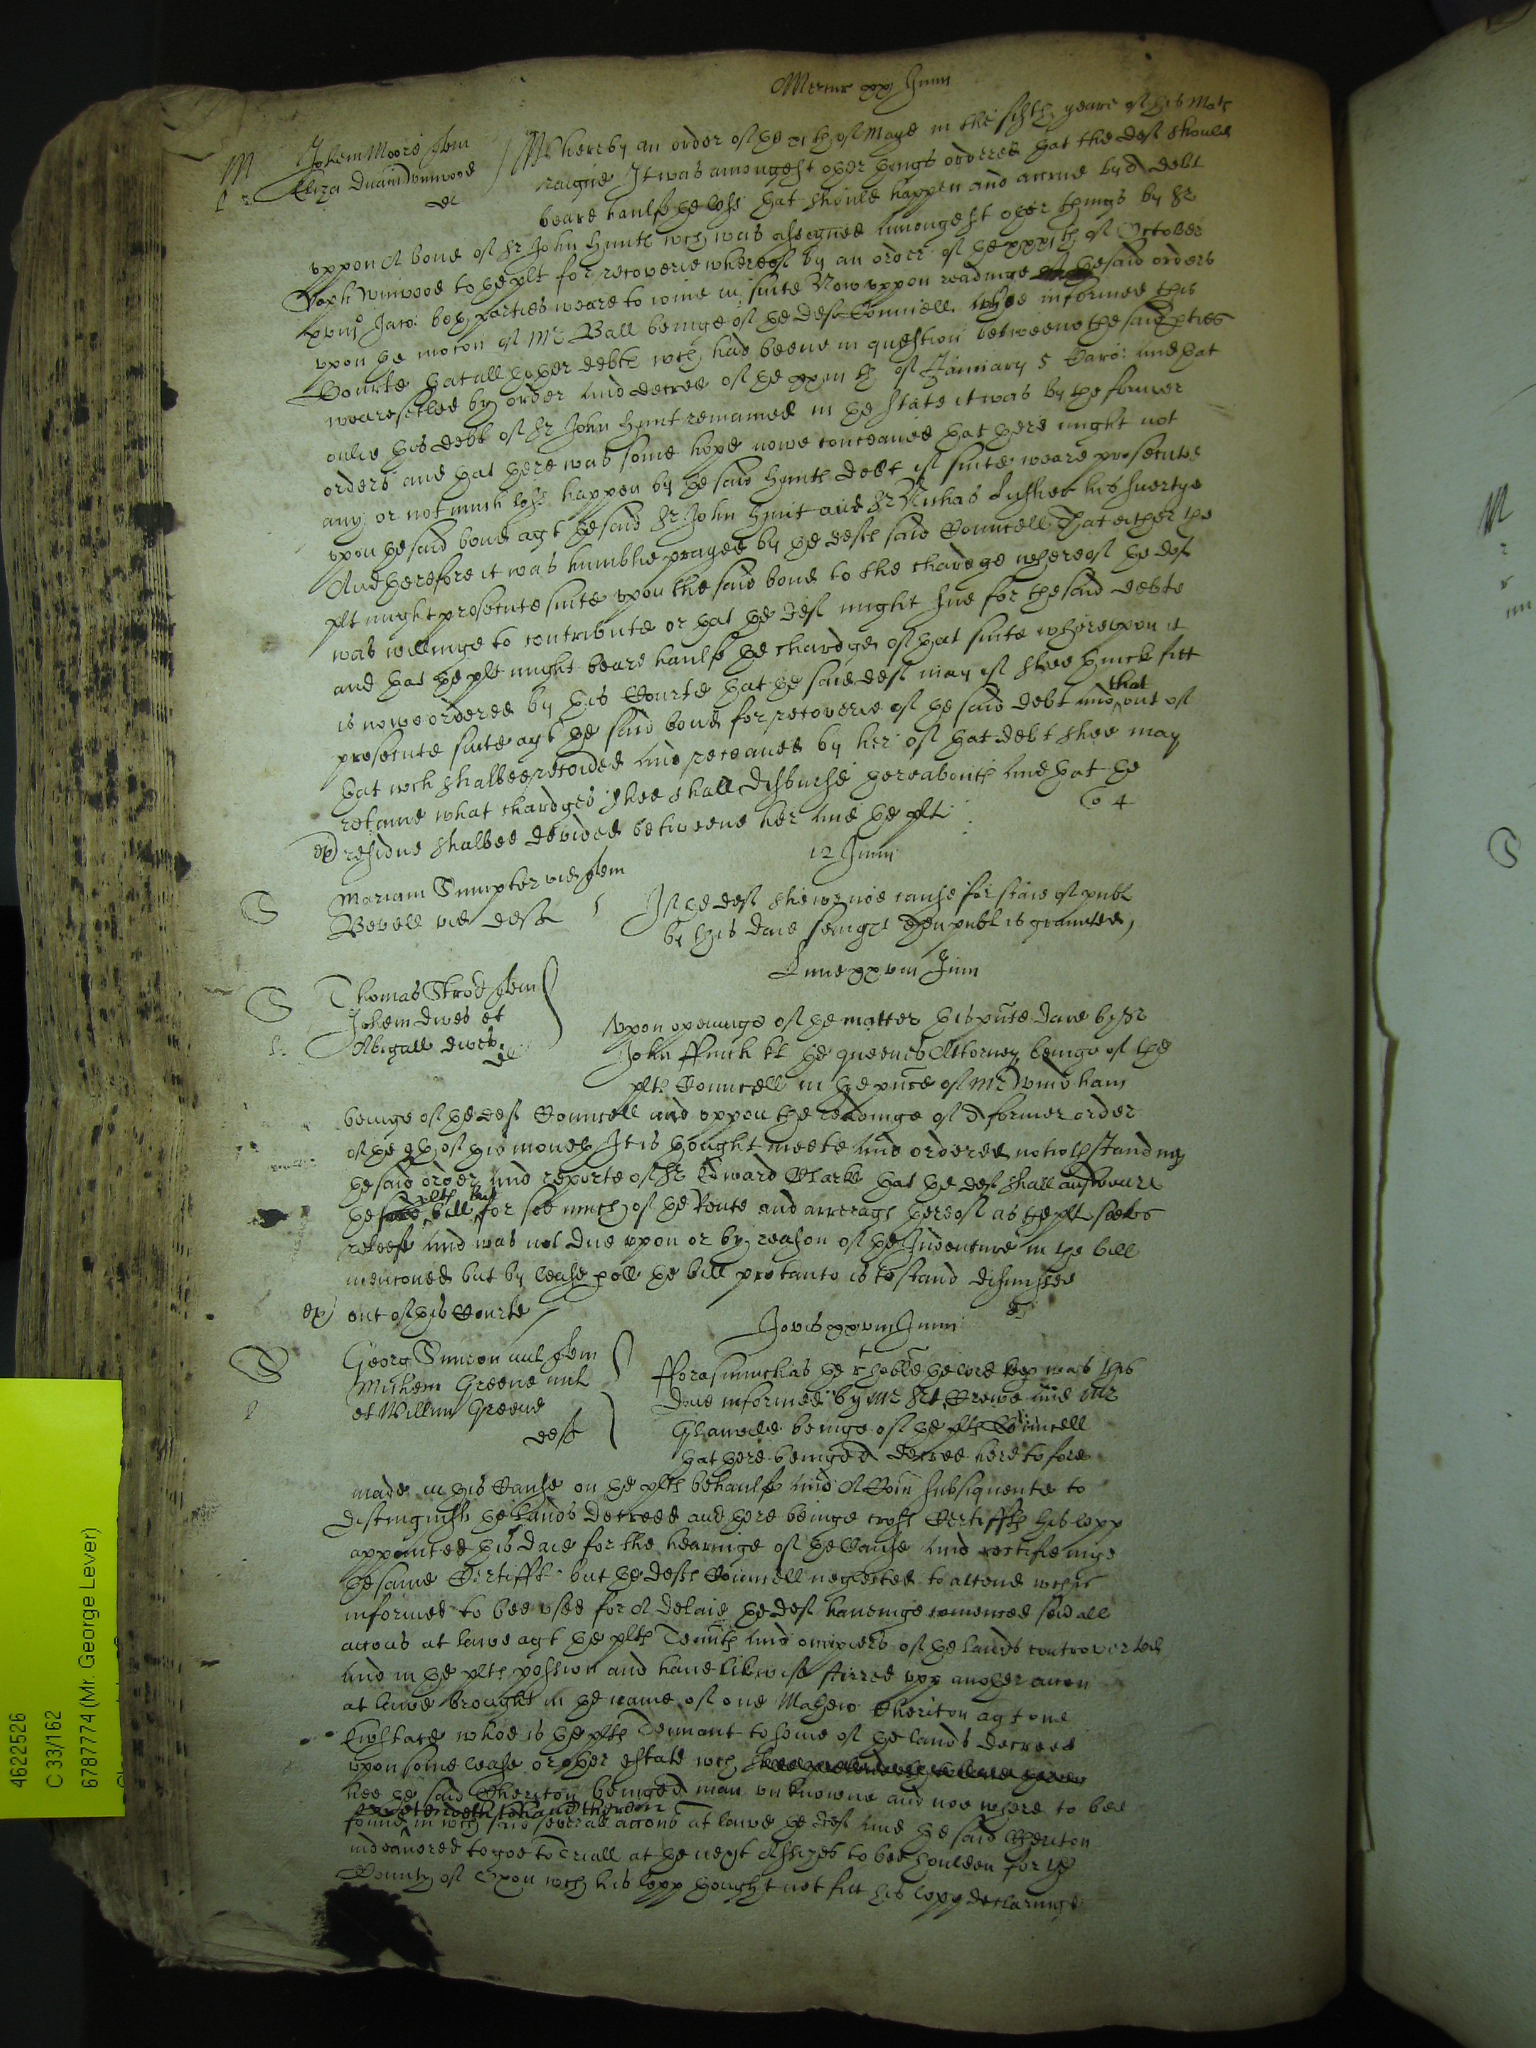 Mercur xxj Junii
M
Johem Moore quer
Eliza Dnam Vinwood
def
Whereby an order of the xth of Maye in the fifth yeare of his Mats
raigne It was amongest other things ordered that the deft should
beare haulfe the losse that should happen and accrue by a debt
uppon a bond of Sr John Hunt wch was assigned amongest other things by Sr
Raph Winwood to the plt for recoverie whereof by an order of the
Caroli both parties weare to ioine in suite Now uppon readinge the said orders
upon the mocon of Mr Ball beinge of the defts Councell whoe informed this
Courte that all other debts wch had beene in question betweene the said pties
weare setled by order and decree of the of January 5 Caro: and that
onlie this debt of Sr John Hunt remained in the state it was by the former
orders and that there was some hope nowe conceaved that there might not
any or not much losse happen by the said Hunts debt if suite weare prosecuted
upon the said bond agt the said Sr John Hunt and Sr Nichas his suertye
And therefore it was humblie prayed by the defts said Councell That either the
plt might prosecute suite upon the said bond to the chardge whereof the deft
was willinge to contribute or that the deft might sue for the said debte
and that the plt might beare haulfe the chardge of that suite whereupon it
is nowe ordered by this Courte that the said deft may if shee thinck fitt
prosecute suite agt the said bond for recoverie of the said debt and that out of
that wch shalbee recovered and receaved by her of that debt shee may
retaine what chardges shee shall disburse thereabouts and that the
ex) residue shalbee devided betweene her and the plt
12 Junii
S
Mariam Sumpter vid quer
Bevell vid deft
If the deft shewe noe cause for staie of publ
by this daie sevenight then publ is graunted
Lune xxviii Junii
S
Thomas Strod quer
Johem Dives et
Abigall Dives
def
Upon openinge of the matter this pnte daie by Sr
John ffinch kt the queenes Attorney beinge of the
plts Councell in the pnce of Mr
beinge of the defts Councell and uppon the readinge of a former order
of the of this moneth It is thought meete and ordered notwithstanding
the said order and reporte of Sr Edward Clarke that the deft shall answeare
the plts bill but for soe much of the Rente and arrerags thereof as the plt seekes
releefe and was not due upon or by reason of the Indenture in the bill
mencioned but by lease poll the bill pro tanto is to stand dismissed
ex) out of this Courte
Jovis xxviii Junii
S
Georg Simcon mil quer
Michem Greene mil
et Willm Greene
deft
Forasmuch as the r: hoble the lord keep was this
daie informed by Mr Srt Crewe and Mr
beinge of the plts Councell
that there beinge a decree heretofore
made in this Cause on the plts behaulfe and a Comn subsequente to
distinguish the lands decreed and there beinge crosse Certiffts his lopp
appointed this daie for the hearinge of the Cause and rectifieinge
the same Certifft but the defts Councell neglected to attend wch is
informed to bee used for a delaie the deft haveinge comenced sevall
accons at lawe agt the plts Tennts and occupiers of the lands controverted
and in the plts possion and have likewise stirred upp another accon
at lawe brought in the name of one Mathew Cheriton agt one
whoe is the plts Tennant to some of the lands decreed
upon some lease or other estate wch
hee the said Cheriton beinge a man unknowne and noe where to bee
found in wch said severall accons at lawe the deft and the said Cheriton
indeavored to goe to Triall at the next Assizes to bee houlden for the
County of Oxon wch his lopp thought not fitt his lopp declaringe
4622526
C 33/162
6787774 (Mr. George Lever)